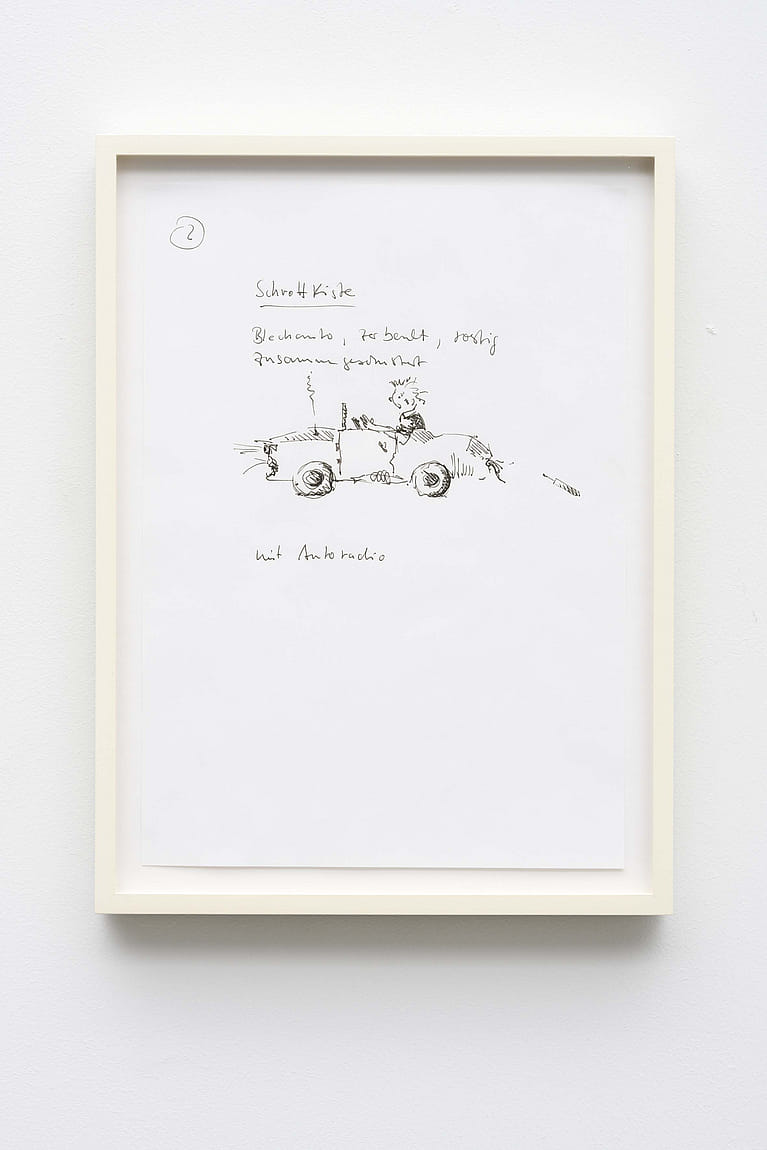 2
Schrottkiste
Blechauto, zerbeult, rostig
zusammengeschustert
mit Autoradio